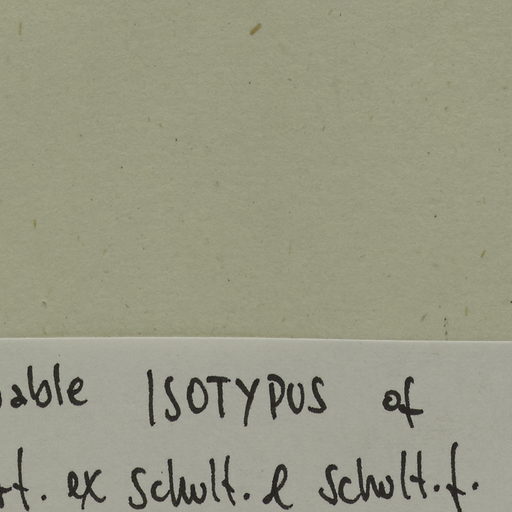 able ISOTYPUS of
t. ex Schult. & Schult.f.